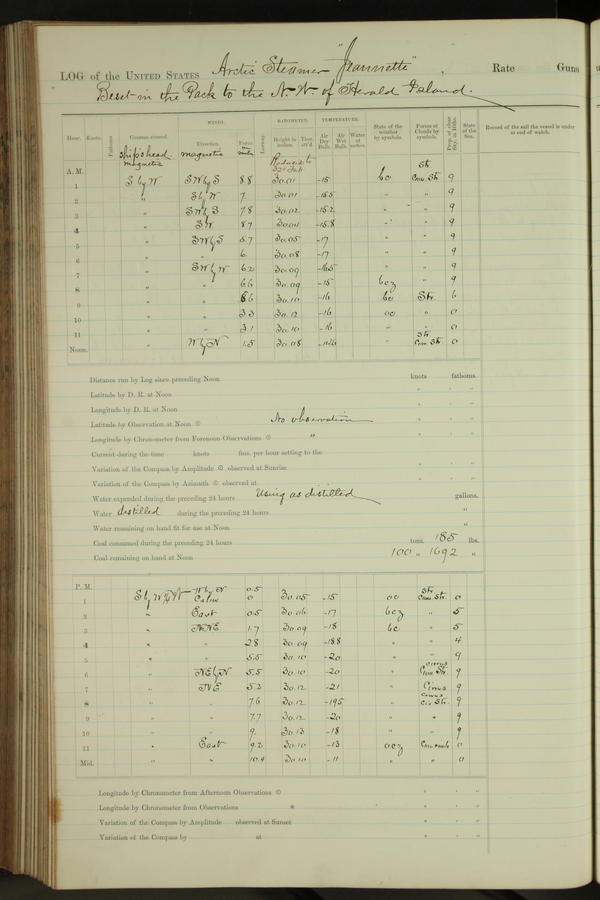 LOG of the UNITED STATES Arctic Steamer "Jeannette", Rate Guns
Beset in the Pack to the N.W. of Herald Island.
Hour. Knots. Fathoms. Courses steered. WINDS. Direction. Force. Leeway. BAROMETER. Height in inches. Ther. att'd. TEMPERATURE. Air Dry Bulb. Air Wet Bulb. Water at surface. State of the weather by symbols. Forms of Clouds by symbols. Prop. of clear Sky, in 10ths. State of the Sea. Record of the sail the vessel is under at end of watch.
ship's head magnetic magnetic Reduced to 32° Fah
A. M. Str.
1 S by W SW by S 8.8 30.01 -15 bc Cum. Str. 9
2 " S by W 7. 30.01 -15.5 " " 9
3 " SW by S 7.8 30.02 -15.2 " " 9
4 " SW 8.7 30.04 -15.8 " " 9
5 " SW by S 5.7 30.05 -17 " " 9
6 " " 6. 30.08 -17 " " 9
7 " SW by W 6.2 30.09 -16.5 " " 9
8 " " 6.6 30.09 -15 bcz " 9
9 " " 6.6 30.10 -16 bc Str. 6
10 " " 3.3 30.12 -16 oc " 0
11 " " 3.1 30.10 -16 " " 0
Str.
Noon. " W by N 1.5 30.08 " Cum. Str. 0
Distance run by Log since preceding Noon knots fathoms.
Latitude by D. R. at Noon " " "
Longitude by D. R. at Noon " " "
Latitude by Observation at Noon No observation " " "
Longitude by Chronometer from Forenoon Observations " " " "
Current during the time knots fms. per hour setting to the
Variation of the Compass by Amplitude observed at Sunrise " " "
Variation of the Compass by Azimuth observed at " " "
Water expended during the preceding 24 hours Using as distilled gallons.
Water distilled during the preceding 24 hours "
Water remaining on hand fit for use at Noon "
Coal consumed during the preceding 24 hours tons. 185 lbs.
Coal remaining on hand at Noon 100 " 1692 "
P. M. W by N 0.5 Str.
1 Calm 0 30.05 -15 oc Cum. Str. 0
2 " East 0.5 30.06 -17 bcz " 5
3 " NNE 1.7 30.09 -18 bc " 5
4 " " 2.8 30.09 -18.8 " " 4
5 " " 5.5 30.10 -20 " " 9
cirrus
6 " NE by N 5.5 30.10 -20 " Cum. Str. 9
7 " NE 5.2 30.12 -21 " Cirrus 9
cirrus
8 " " 7.6 30.12 -19.5 " Cir. Str. 9
9 " " 7.7 30.12 -20 " " 9
10 " " 9. 30.13 -18 " " 9
11 " East 9.2 30.10 -13 ocz 0
Mid. " " 10.4 30.10 -11 " " 0
Longitude by Chronometer from Afternoon Observations " " "
Longitude by Chronometer from Observations " " "
Variation of the Compass by Amplitude observed at Sunset " " "
Variation of the Compass by at " " "